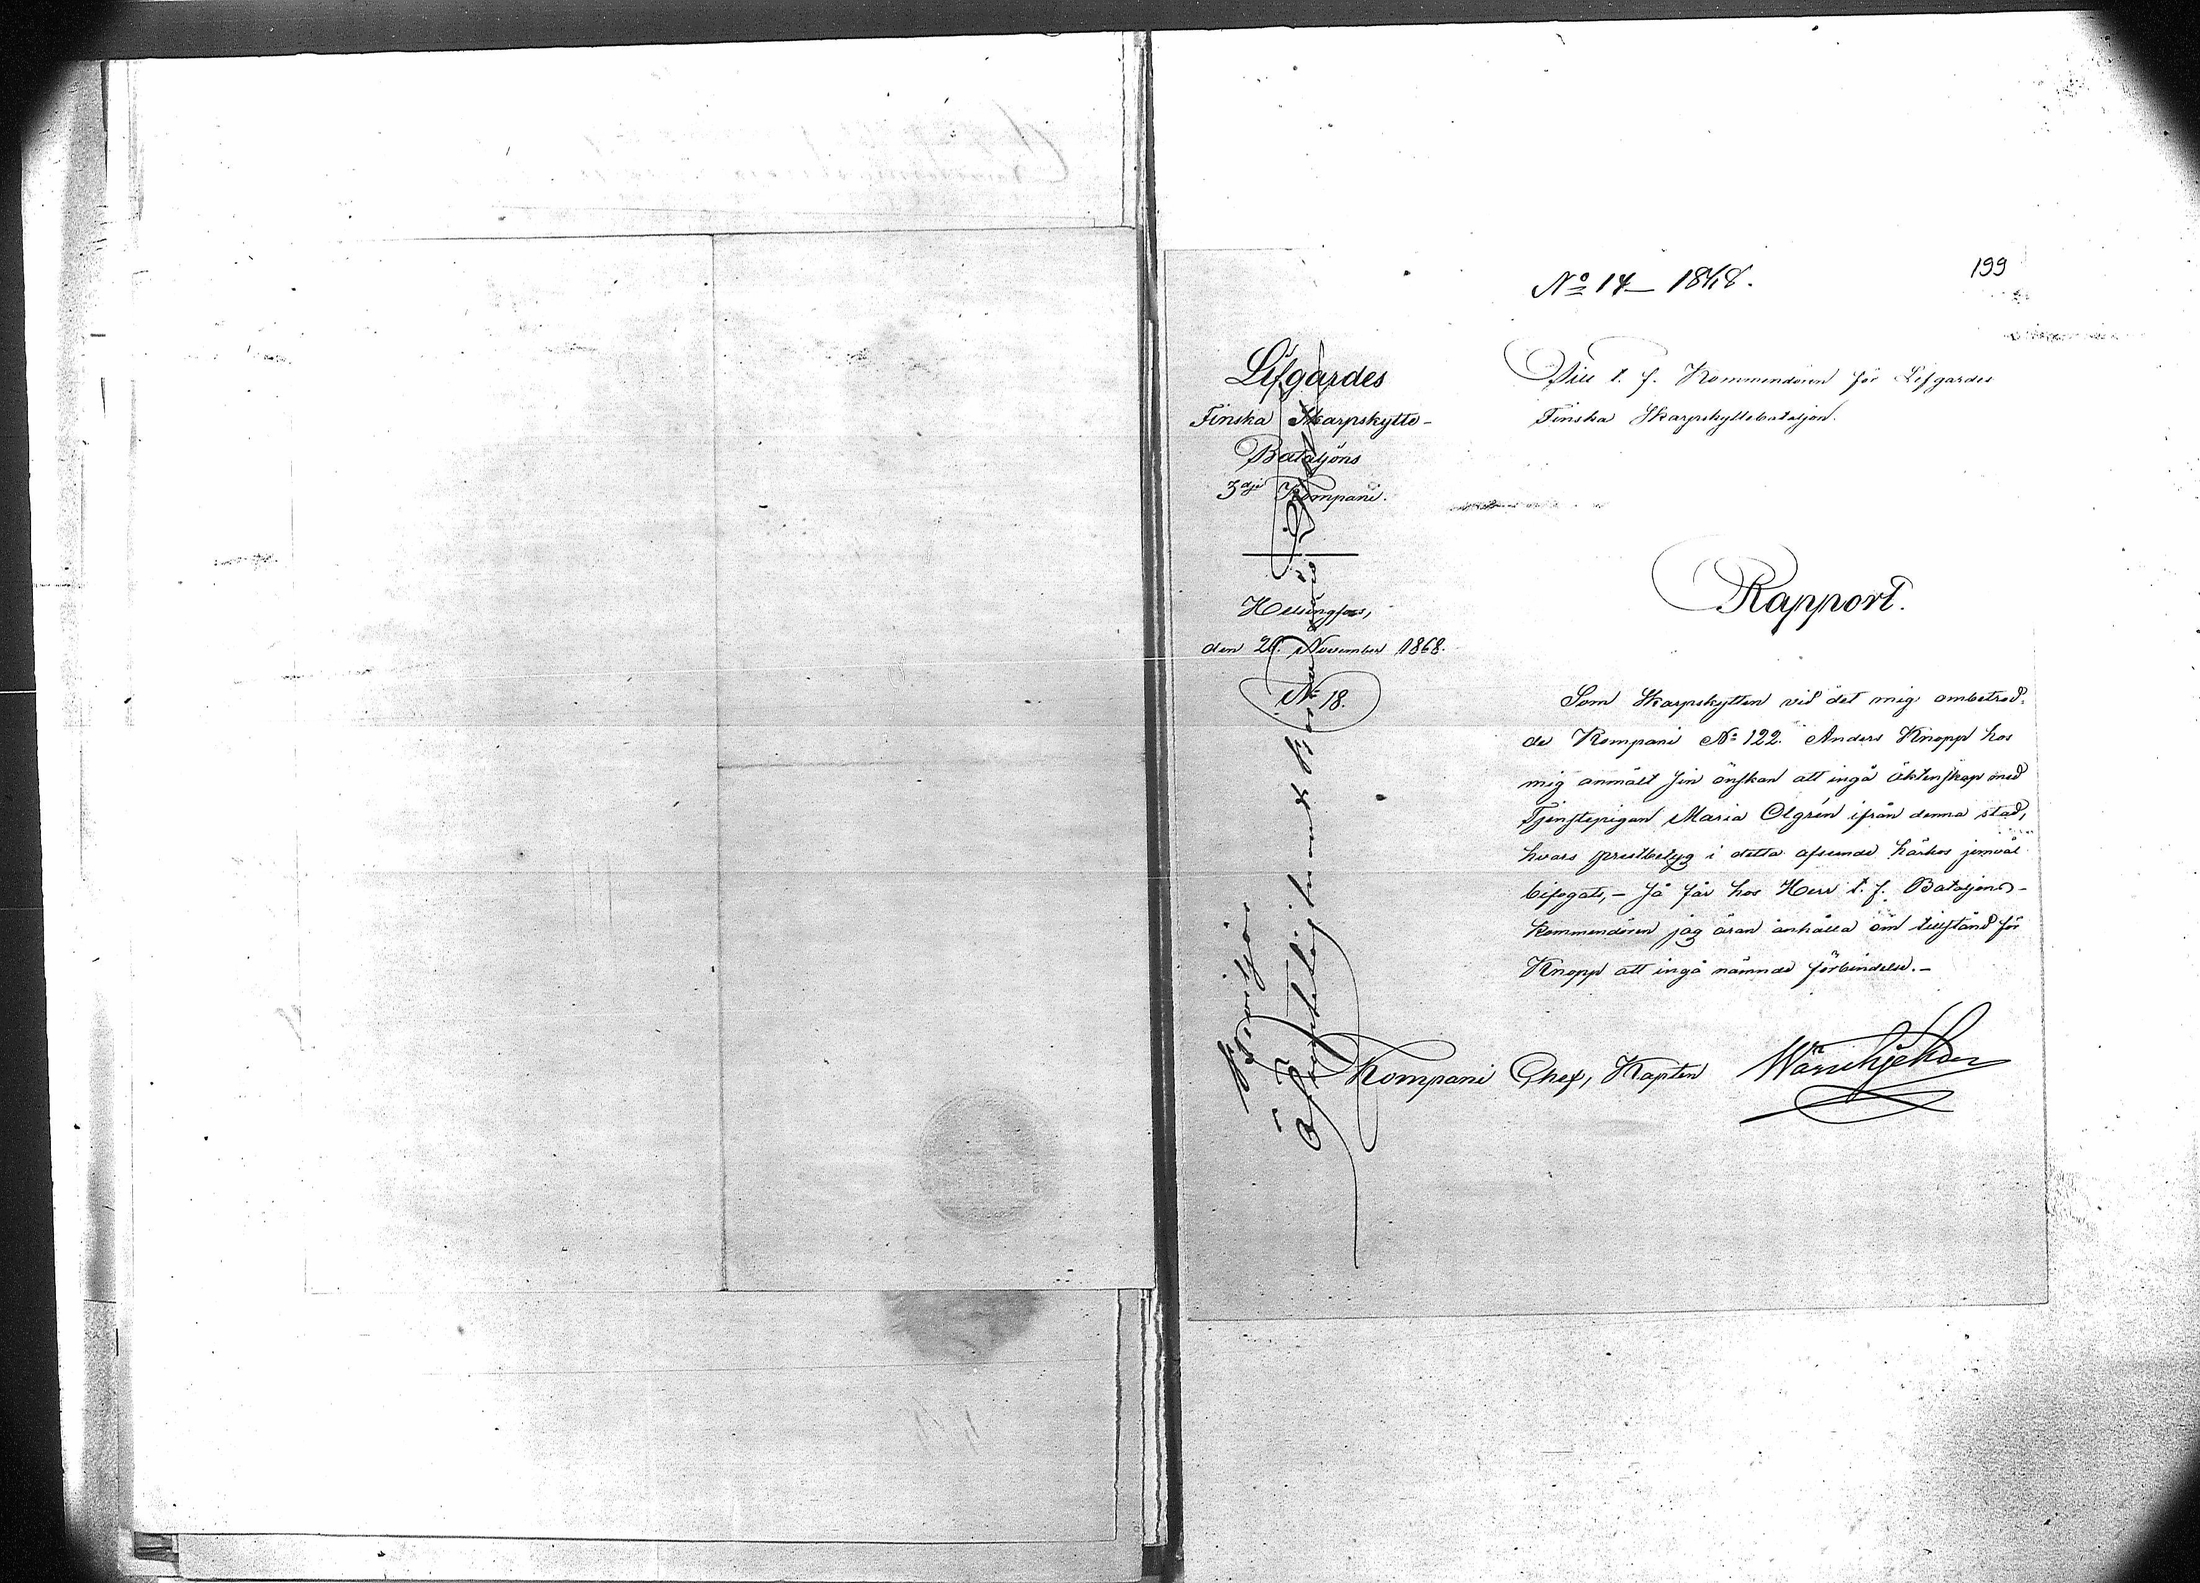 No 14 — 1868.
199
Lifgardes
Finska Skarpskytte-
Bataljons
3dje Kompani.
Helsingfors,
den 20. November 1868.
No 18.
Till t. f. Kommendören för Lifgardes
Finska Skarpskyttebataljon.
Rapport.
Som Skarpskytten vid det mig ombetrod-
de Kompani No 122. Anders Knopp hos
mig anmält sin önskan att ingå äktenskap med
Tjenstepigan Maria Olgrén ifrån denna stad,
hvars prestbetyg i detta afseende härhos jemväl
bifogats, — så får hos Herr t. f. Bataljons-
kommendören jag äran anhålla om tillstånd för
Knopp att ingå nämnde förbindelse. —
Kompani Chef, Kapten